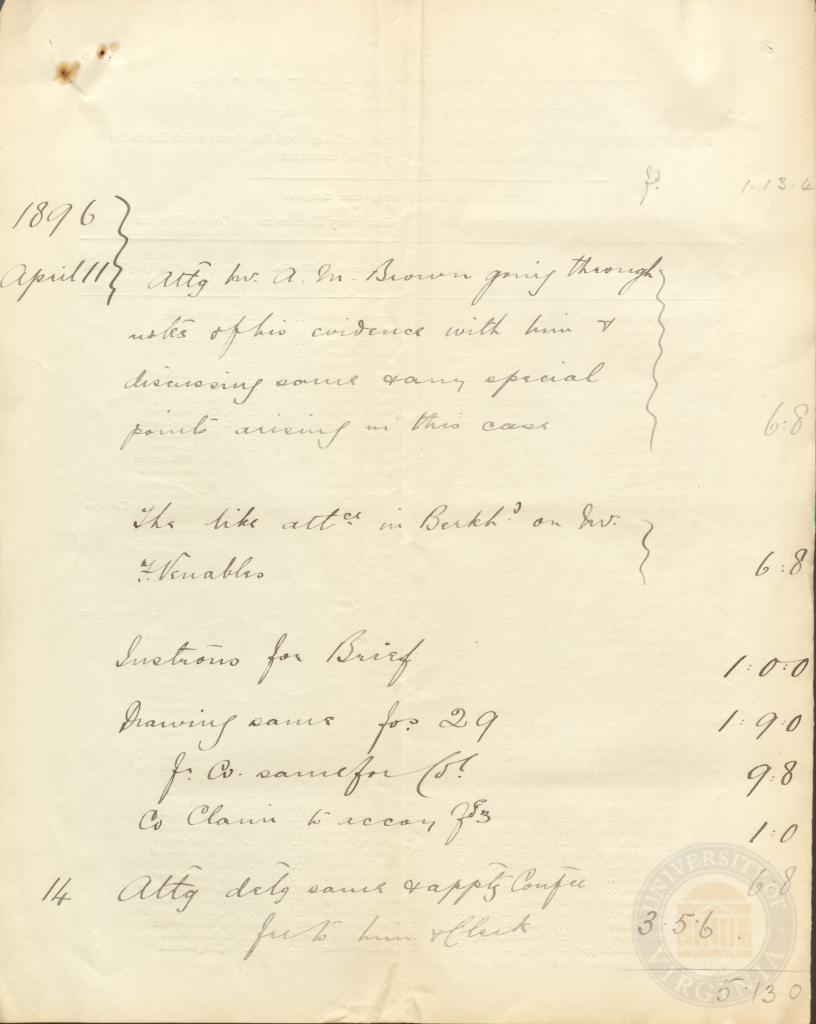 1·13·4
1896
April 11 Attg Mr. A. M. Brown going through
notes of his evidence with him &
discussing same & any special
points arising in this case 6:8
The like attce in Berkhd on Mr.
F. Venables 6:8
Instrons for Brief 1:0:0
Drawing same fos 29 1:9:0
fr Co. same for Csl 9:8
Co Claim to accoy 1:0
14 Attg detg same & apptg Confce 6:8
fee to him & Clerk 3·5·6
5·13·0
UNIVERSITY OF VIRGINIA